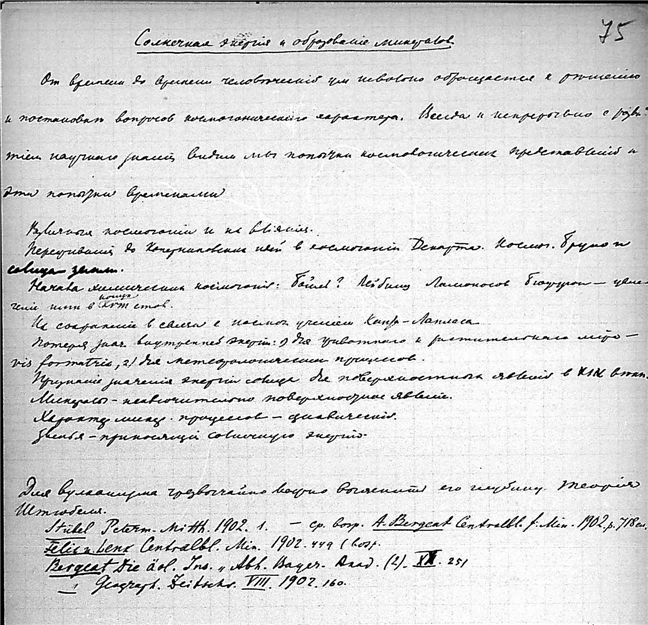 75
Солнечная энергія и образованіе минераловъ.
От времени до времени человѣческій ум невольно обращается к рѣшенію
и постановкѣ вопросов космогоническаго характера. Всегда и непрерывно с разви-
тіем научнаго знанія видим мы попытки космологических представленій и
эти попытки временами
космогоніи и их вліянія.
до Коперниковских идей в космогоніи Декарта. Космог. Бруно и
солнца земли.
Начала химических космогоній: Бойль? Лейбниц Ломоносов Бюффон –
или в конце XVIII стол.
Их сохраненіе в связи с космог. ученіем Канта-Лапласа
Потеря знач. внутренней энергіи: 1) для животнаго и растительнаго міра –
vis formatrix, 2) для метеорологических процессов.
значенія энергіи солнца для поверхностных явленій в XIX столѣт.
Минералы – исключительно поверхностное явленіе.
Характер минер. процессов – физическій.
Звенья – приносящія солнечную энергію.
Для вулканизма чрезвычайно важно выяснить его глубину. Теорія
Штюбеля.
Stübel Peterm. Mitth. 1902. 1. – ср. возр. A. Bergeat Centralbl. f. Min. 1902. p. 718
Felix u. Lenk Centralbl. Min. 1902. 449 (возр.
Bergeat Die äol. Ins. „ Abh. Bayer. Akad. (2). XX. 251
Geograph. Zeitschr. VIII. 1902. 160.